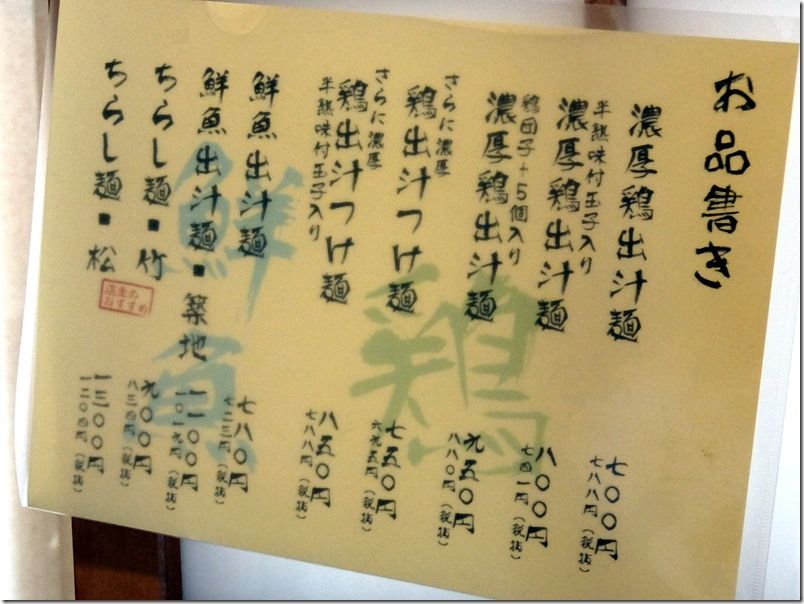 お品書き
濃厚鶏出汁麺
七〇〇円
七八八円(税抜)
半熟味付玉子入り
濃厚鶏出汁麺
八〇〇円
七四一円(税抜)
鶏団子+5個入り
濃厚鶏出汁麺
九五〇円
八八〇円(税抜)
さらに濃厚
鶏出汁つけ麺
七五〇円
六九五円(税抜)
さらに濃厚
鶏出汁つけ麺
半熟味付玉子入り
八五〇円
七八八円(税抜)
鮮魚出汁麺
七八〇円
七二三円(税抜)
鮮魚出汁麺■築地
一一〇〇円
一〇一九円(税抜)
ちらし麺■竹
九〇〇円
八三四円(税抜)
ちらし麺■松
店主の
おすすめ
一三〇〇円
一二〇四円(税抜)
鶏
鮮魚